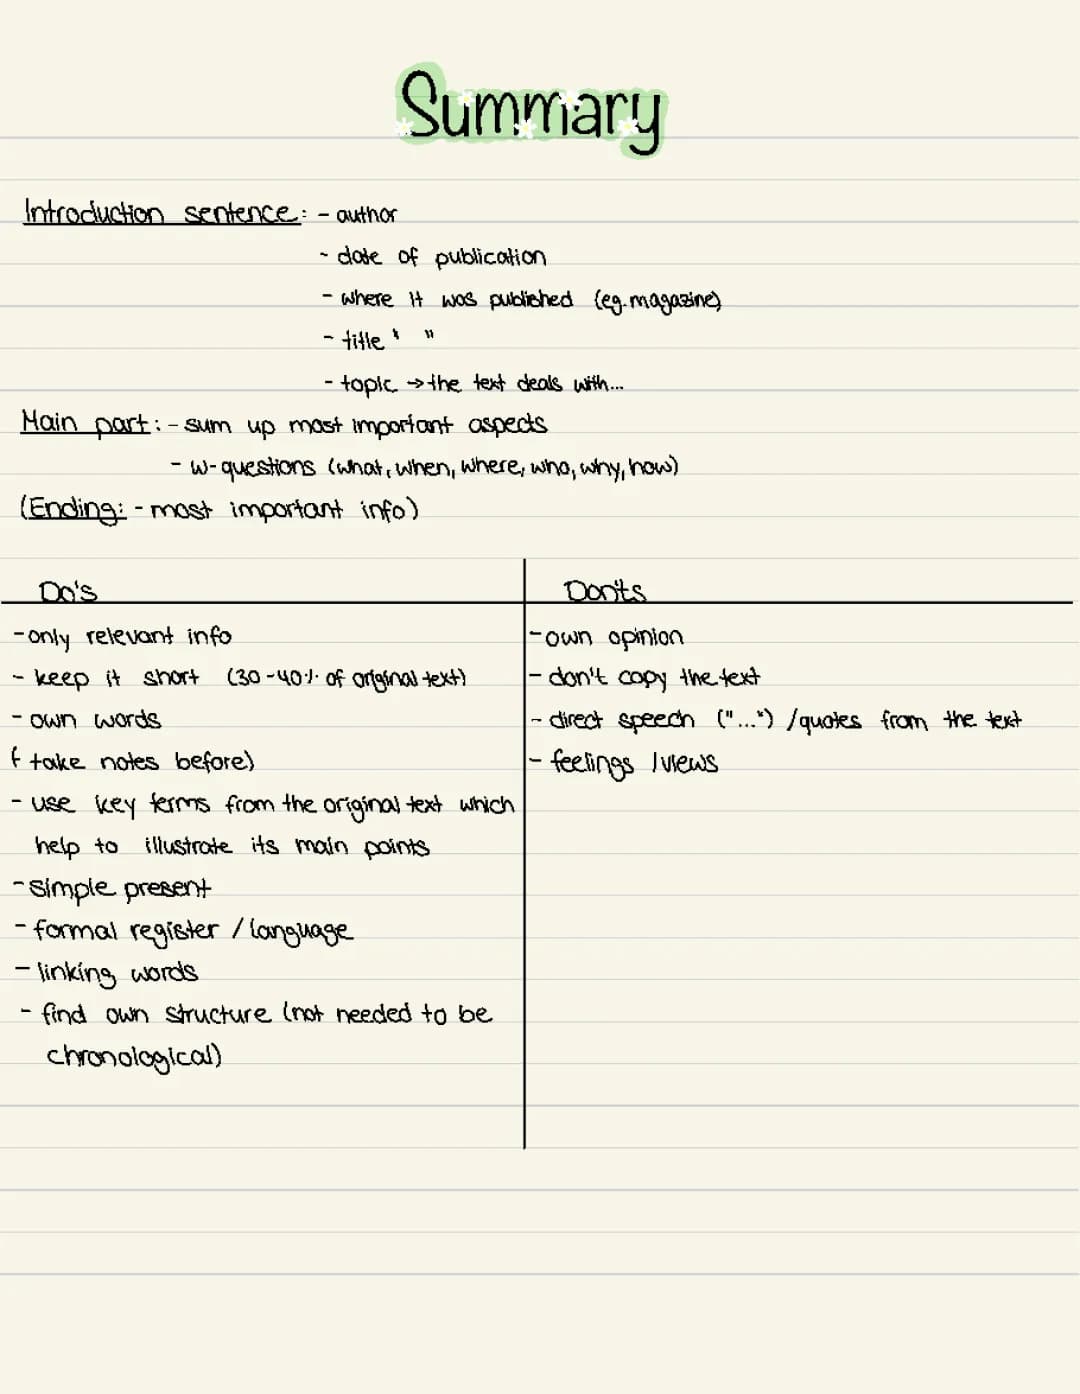 Summary
Introduction sentence: - author
- date of publication
- where it was published (eg. magazine)
- title " "
- topic → the text deals with...
Main part: - sum up most important aspects
- w-questions (what, when, where, who, why, how)
(Ending: - most important info)
Do's
- only relevant info
- keep it short (30-40% of original text)
- own words
(- take notes before)
- use key terms from the original text which
help to illustrate its main points
- simple present
- formal register / language
- linking words
- find own structure (not needed to be
chronological)
Don'ts
- own opinion
- don't copy the text
- direct speech ("...") / quotes from the text
- feelings / views